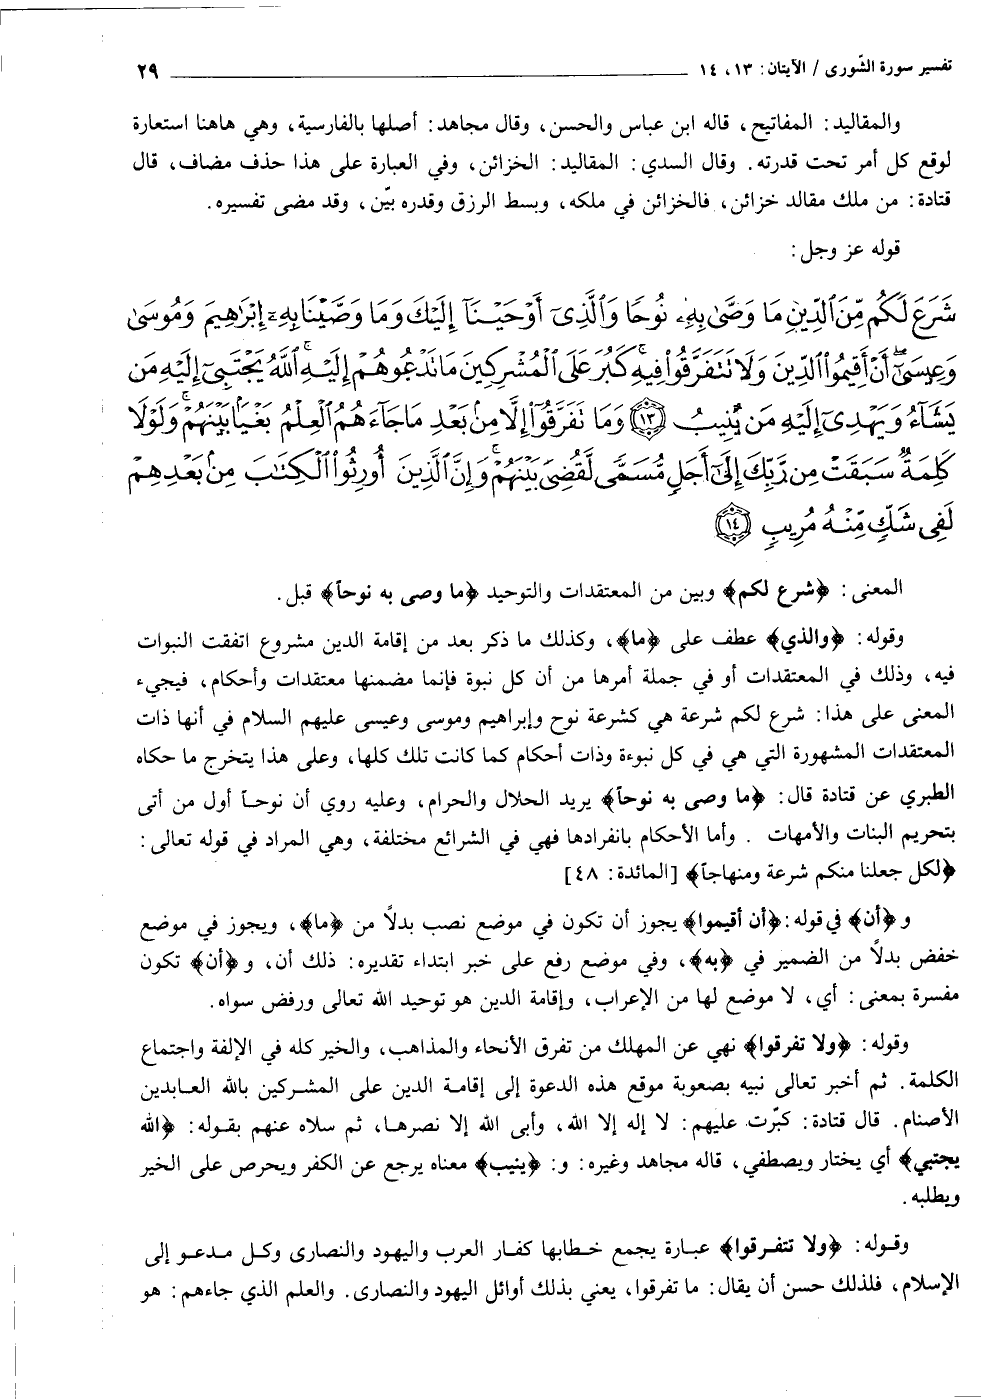 تفسير سورة الشّورى / الآيتان: ١٣، ١٤ ٢٩
والمقاليد: المفاتيح، قاله ابن عباس والحسن، وقال مجاهد: أصلها بالفارسية، وهي هاهنا استعارة
لوقع كل أمر تحت قدرته. وقال السدي: المقاليد: الخزائن، وفي العبارة على هذا حذف مضاف، قال
قتادة: من ملك مقالد خزائن، فالخزائن في ملكه، وبسط الرزق وقدره بيّن، وقد مضى تفسيره.
قوله عز وجل:
شَرَعَ لَكُم مِّنَ ٱلدِّينِ مَا وَصَّىٰ بِهِۦ نُوحًا وَٱلَّذِىٓ أَوْحَيْنَآ إِلَيْكَ وَمَا وَصَّيْنَا بِهِۦٓ إِبْرَٰهِيمَ وَمُوسَىٰ
وَعِيسَىٰٓ ۖ أَنْ أَقِيمُوا۟ ٱلدِّينَ وَلَا تَتَفَرَّقُوا۟ فِيهِ ۚ كَبُرَ عَلَى ٱلْمُشْرِكِينَ مَا تَدْعُوهُمْ إِلَيْهِ ۚ ٱللَّهُ يَجْتَبِىٓ إِلَيْهِ مَن
يَشَآءُ وَيَهْدِىٓ إِلَيْهِ مَن يُنِيبُ ١٣ وَمَا تَفَرَّقُوٓا۟ إِلَّا مِنۢ بَعْدِ مَا جَآءَهُمُ ٱلْعِلْمُ بَغْيًۢا بَيْنَهُمْ ۚ وَلَوْلَا
كَلِمَةٌ سَبَقَتْ مِن رَّبِّكَ إِلَىٰٓ أَجَلٍ مُّسَمًّى لَّقُضِىَ بَيْنَهُمْ ۚ وَإِنَّ ٱلَّذِينَ أُورِثُوا۟ ٱلْكِتَٰبَ مِنۢ بَعْدِهِمْ
لَفِى شَكٍّ مِّنْهُ مُرِيبٍ ١٤
المعنى: ﴿شرع لكم﴾ وبين من المعتقدات والتوحيد ﴿ما وصى به نوحاً﴾ قبل.
وقوله: ﴿والذي﴾ عطف على ﴿ما﴾، وكذلك ما ذكر بعد من إقامة الدين مشروع اتفقت النبوات
فيه، وذلك في المعتقدات أو في جملة أمرها من أن كل نبوة فإنما مضمنها معتقدات وأحكام، فيجيء
المعنى على هذا: شرع لكم شرعة هي كشرعة نوح وإبراهيم وموسى وعيسى عليهم السلام في أنها ذات
المعتقدات المشهورة التي هي في كل نبوءة وذات أحكام كما كانت تلك كلها، وعلى هذا يتخرج ما حكاه
الطبري عن قتادة قال: ﴿ما وصى به نوحاً﴾ يريد الحلال والحرام، وعليه روي أن نوحاً أول من أتى
بتحريم البنات والأمهات . وأما الأحكام بانفرادها فهي في الشرائع مختلفة، وهي المراد في قوله تعالى:
﴿لكل جعلنا منكم شرعة ومنهاجاً﴾ [المائدة: ٤٨]
و﴿أن﴾ في قوله: ﴿أن أقيموا﴾ يجوز أن تكون في موضع نصب بدلاً من ﴿ما﴾، ويجوز في موضع
خفض بدلاً من الضمير في ﴿به﴾، وفي موضع رفع على خبر ابتداء تقديره: ذلك أن، و﴿أن﴾ تكون
مفسرة بمعنى: أي، لا موضع لها من الإعراب، وإقامة الدين هو توحيد الله تعالى ورفض سواه.
وقوله: ﴿ولا تفرقوا﴾ نهي عن المهلك من تفرق الأنحاء والمذاهب، والخير كله في الإلفة واجتماع
الكلمة. ثم أخبر تعالى نبيه بصعوبة موقع هذه الدعوة إلى إقامة الدين على المشركين بالله العابدين
الأصنام. قال قتادة: كبّرت عليهم: لا إله إلا الله، وأبى الله إلا نصرها، ثم سلاه عنهم بقوله: ﴿الله
يجتبي﴾ أي يختار ويصطفي، قاله مجاهد وغيره: و: ﴿ينيب﴾ معناه يرجع عن الكفر ويحرص على الخير
ويطلبه.
وقوله: ﴿ولا تتفرقوا﴾ عبارة يجمع خطابها كفار العرب واليهود والنصارى وكل مدعو إلى
الإسلام، فلذلك حسن أن يقال: ما تفرقوا، يعني بذلك أوائل اليهود والنصارى. والعلم الذي جاءهم: هو